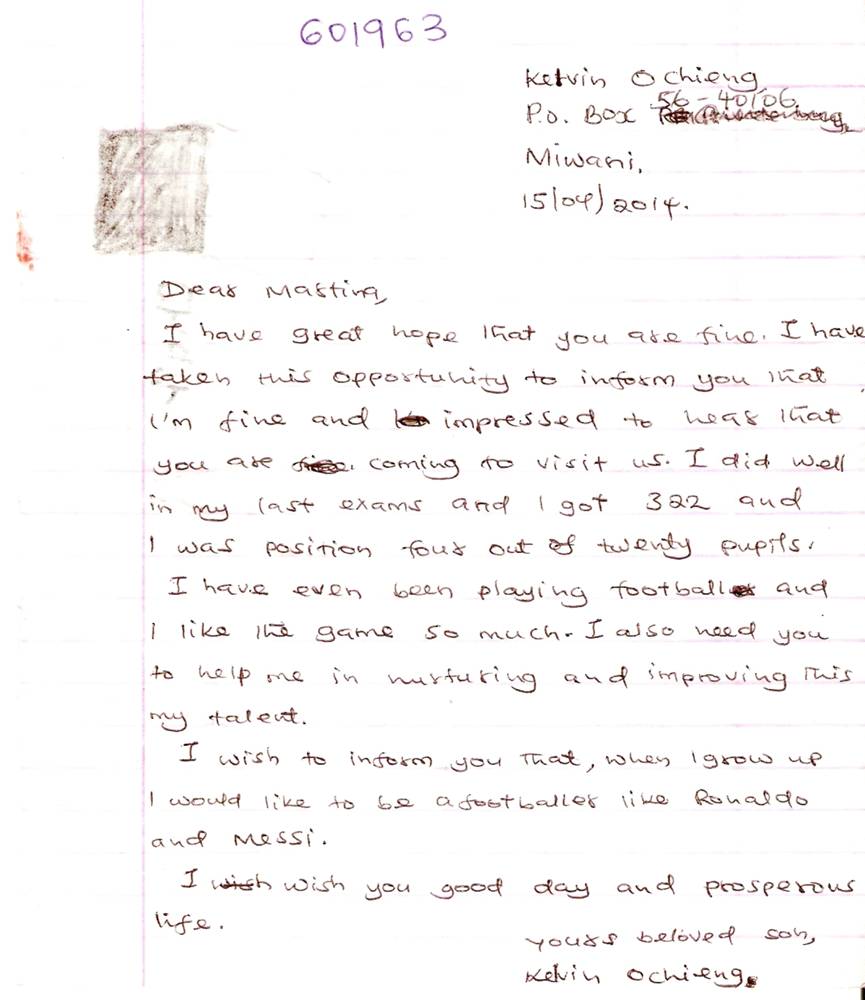 601963
Kelvin Ochieng
56-40106.
P.O. BOX
Miwani,
15/04/2014.
Dear Martina,
I have great hope that you are fine. I have
taken this opportunity to inform you that
I'm fine and impressed to hear that
you are coming to visit us. I did well
in my last exams and I got 322 and
I was position four out of twenty pupils.
I have even been playing football and
I like the game so much. I also need you
to help me in nurturing and improving this
my talent.
I wish to inform you that, when I grow up
I would like to be a footballer like Ronaldo
and Messi.
I wish wish you good day and prosperous
life.
yours beloved son,
Kelvin Ochieng.